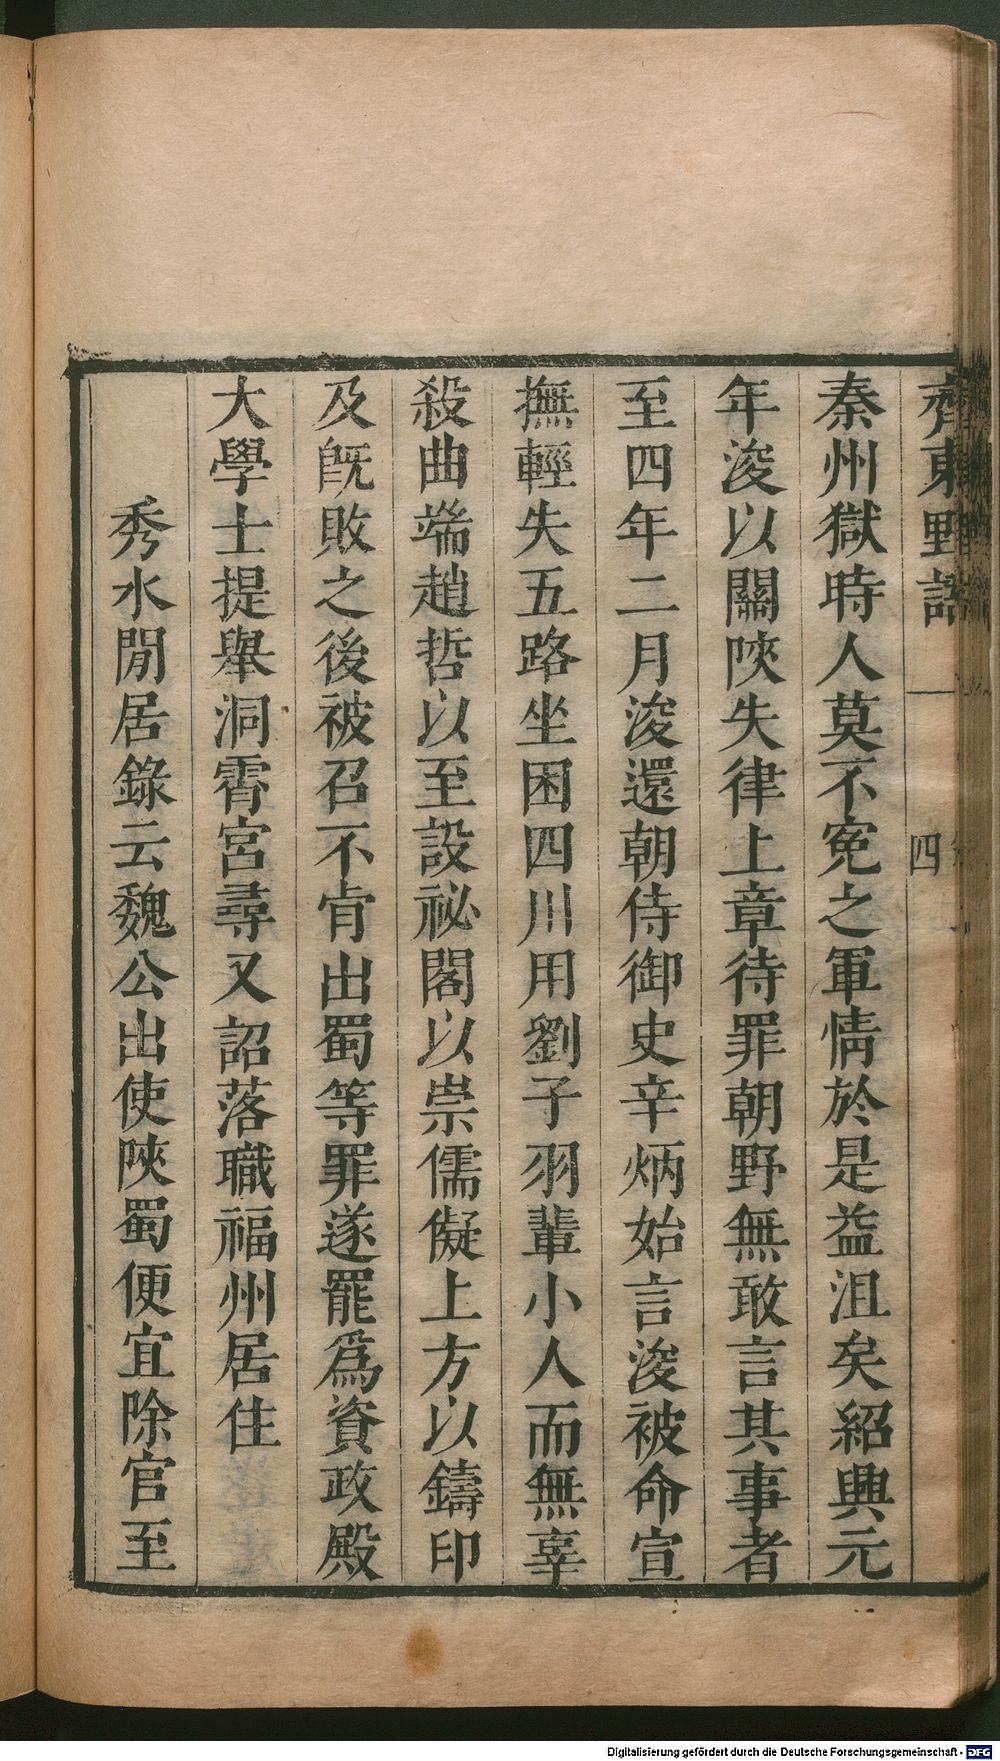 齊東野語
四
秦州獄時人莫不寃之軍情於是益沮矣紹興元
年浚以關陜失律上章待罪朝野無敢言其事者
至四年二月浚還朝侍御史辛炳始言浚被命宣
撫輕失五路坐困四川用劉子羽輩小人而無辜
殺曲端趙哲以至設祕閣以崇儒儗上方以鑄印
及旣敗之後被召不肯出蜀等罪遂罷爲資政殿
大學士提舉洞霄宮尋又詔落職福州居住
秀水閒居錄云魏公出使陜蜀便宜除官至
Digitalisierung gefördert durch die Deutsche Forschungsgemeinschaft - DFG